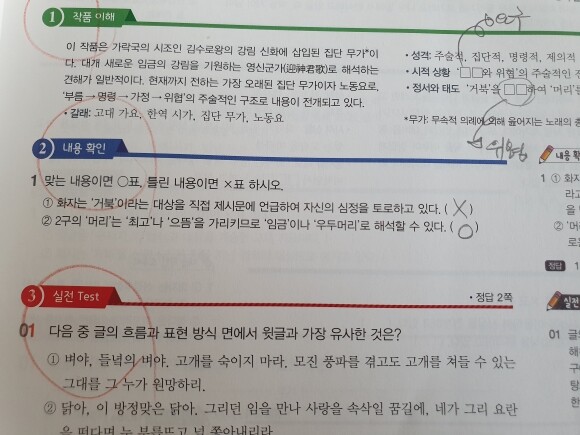 1 작품 이해
이 작품은 가락국의 시조인 김수로왕의 강림 신화에 삽입된 집단 무가*이
다. 대개 새로운 임금의 강림을 기원하는 영신군가(迎神君歌)로 해석하는
견해가 일반적이다. 현재까지 전하는 가장 오래된 집단 무가이자 노동요로,
'부름→명령→가정→위협'의 주술적인 구조로 내용이 전개되고 있다.
• 갈래: 고대 가요, 한역 시가, 집단 무가, 노동요
요구
• 성격: 주술적, 집단적, 명령적, 제의적
• 시적 상황 '□□와 위협'의 주술적인
• 정서와 태도 '거북'을 □□하여 '머리'를
*무가: 무속적 의례에 읊어지는 노래의
위협
2 내용 확인
1 맞는 내용이면 ○표, 틀린 내용이면 ×표 하시오.
① 화자는 '거북'이라는 대상을 직접 제시문에 언급하여 자신의 심정을 토로하고 있다. ( X )
② 2구의 '머리'는 '최고'나 '으뜸'을 가리키므로 '임금'이나 '우두머리'로 해석할 수 있다. ( O )
내용 확
1 ① 화자
라고
을
② '머
로
정답 1
3 실전 Test
• 정답 2쪽
01 다음 중 글의 흐름과 표현 방식 면에서 윗글과 가장 유사한 것은?
① 벼야, 들녘의 벼야. 고개를 숙이지 마라. 모진 풍파를 겪고도 고개를 쳐들 수 있는
그대를 그 누가 원망하리.
② 닭아, 이 방정맞은 닭아. 그리던 임을 만나 사랑을 속삭일 꿈길에, 네가 그리 요란
을 떤다면 눈 부릅뜨고 널 쫓아내리라.
실전
01 글
해
구
탕